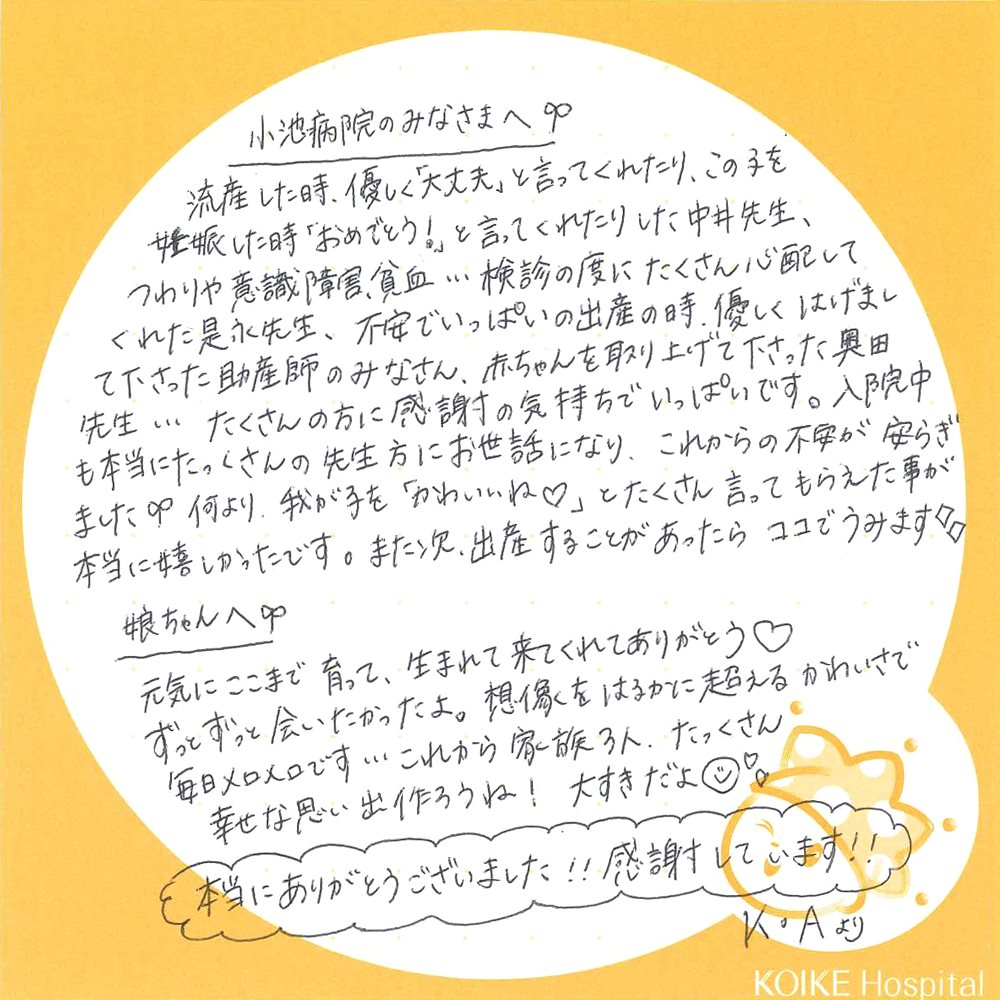 小池病院のみなさまへ
流産した時、優しく「大丈夫」と言ってくれたり、この子を
妊娠した時「おめでとう!」と言ってくれたりした中井先生、
つわりや意識障害、貧血…検診の度にたくさん心配して
くれた是永先生、不安でいっぱいの出産の時、優しくはげまし
て下さった助産師のみなさん、赤ちゃんを取り上げて下さった奥田
先生… たくさんの方に感謝の気持ちでいっぱいです。入院中
も本当にたっくさんの先生方にお世話になり、これからの不安が安らぎ
ました 何より、我が子を「かわいいね♡」とたくさん言ってもらえた事が
本当に嬉しかったです。また次、出産することがあったらココでうみます
娘ちゃんへ
元気にここまで育って、生まれて来てくれてありがとう♡
ずっとずっと会いたかったよ。想像をはるかに超えるかわいさで
毎日メロメロです…これから家族3人、たっくさん
幸せな思い出作ろうね! 大すきだよ☺♡
本当にありがとうございました!!感謝しています!!
K・Aより
KOIKE Hospital